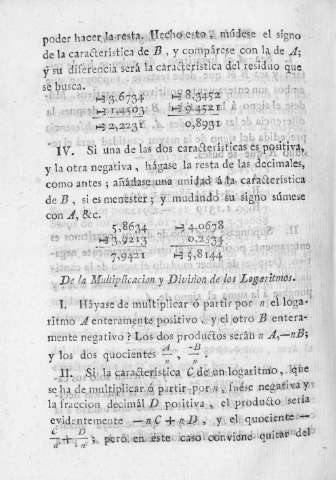 poder hacer la resta. Hecho esto, múdese el signo
de la característica de B, y compárese con la de A;
y su diferencia será la característica del residuo que
se busca.
—3,6734 —8,3452
—1,4503 —9,4521
—2,2231 0,8931
IV. Si una de las dos características es positiva,
y la otra negativa, hágase la resta de las decimales,
como antes; añádase una unidad á la característica
de B, si es menester; y mudando su signo súmese
con A, &c.
5,8634 —4,0678
—3,9213 0,2534
7,9421 —5,8144
De la Multiplicacion y Division de los Logaritmos.
I. Háyase de multiplicar ó partir por n el loga-
ritmo A enteramente positivo, y el otro B entera-
mente negativo? Los dos productos serán n A,—nB;
y los dos quocientes A/n, -B/n.
II. Si la característica C de un logaritmo, que
se ha de multiplicar ó partir por n, fuése negativa y
la fraccion decimál D positiva, el producto sería
evidentemente —nC + nD, y el quociente —
C/n + D/n; pero en este caso conviene quitar del